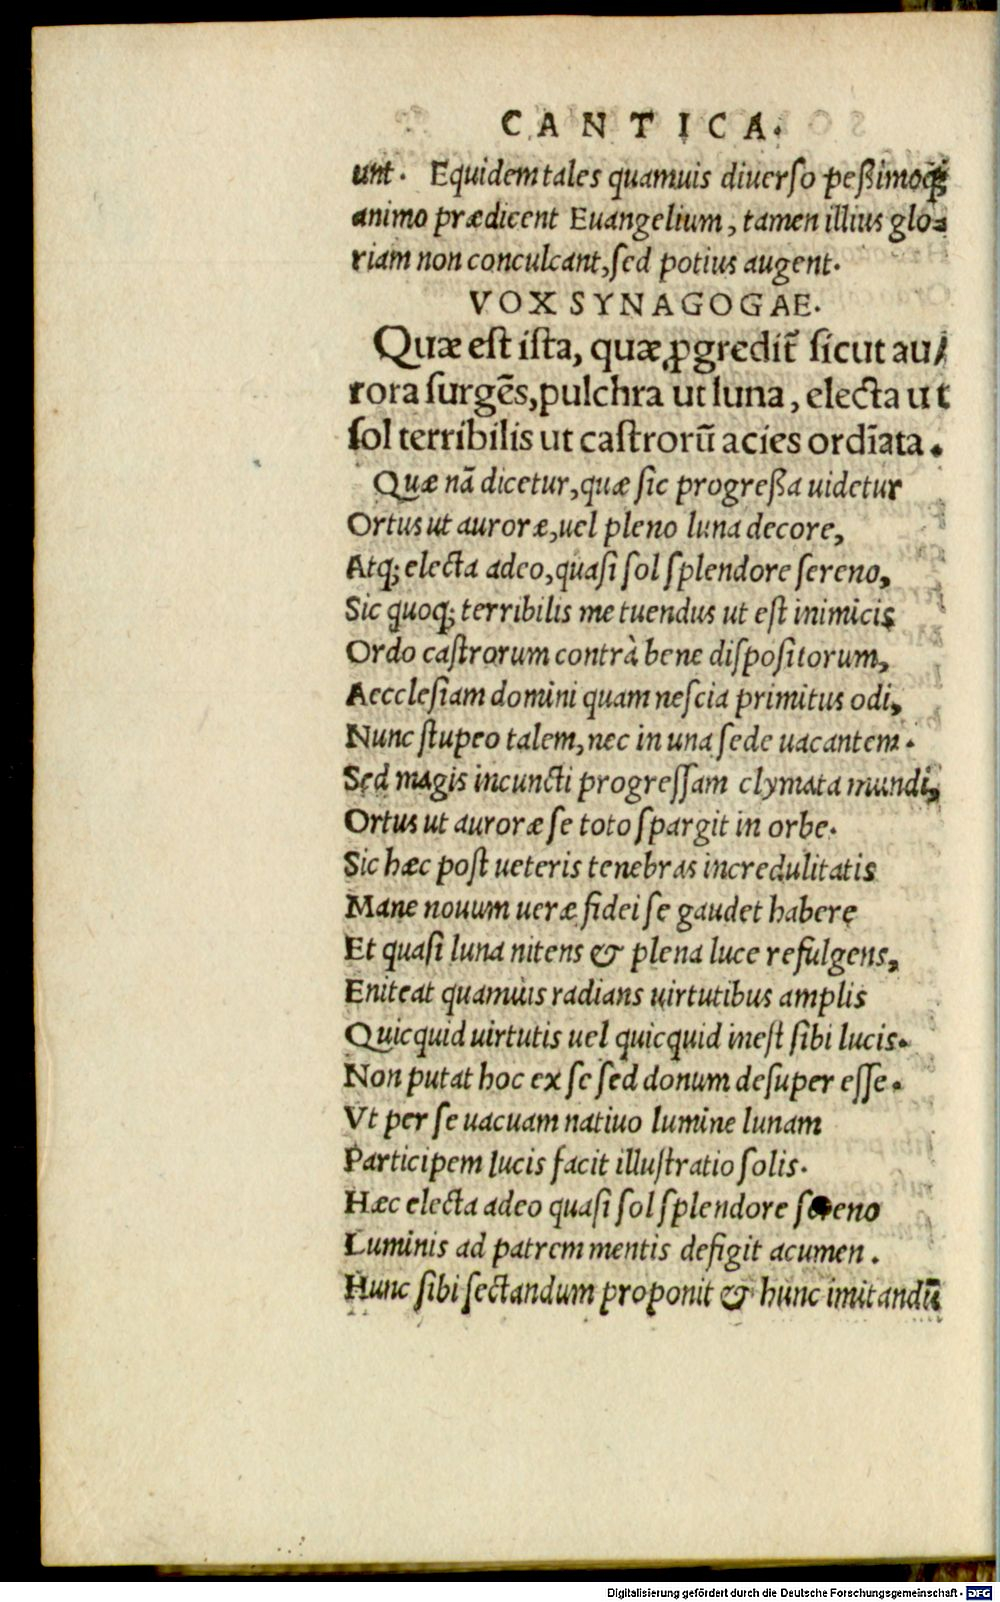 CANTICA.
unt. Equidem tales quamuis diuerso peßimoq;
animo prædicent Euangelium, tamen illius glo-
riam non conculcant, sed potius augent.
VOX SYNAGOGAE.
Quæ est ista, quæ ꝓgredit̃ sicut au/
rora surgẽs, pulchra ut luna, electa ut
sol terribilis ut castrorũ acies ordĩata.
Quæ nã dicetur, quæ sic progreßa uidetur
Ortus ut auroræ, uel pleno luna decore,
Atq; electa adeo, quasi sol splendore sereno,
Sic quoq; terribilis metuendus ut est inimicis
Ordo castrorum contrà bene dispositorum,
Aecclesiam domini quam nescia primitus odi,
Nunc stupeo talem, nec in una sede uacantem.
Sed magis in cuncti progressam clymata mundi,
Ortus ut auroræ se toto spargit in orbe.
Sic hæc post ueteris tenebras incredulitatis
Mane nouum ueræ fidei se gaudet habere
Et quasi luna nitens & plena luce refulgens,
Eniteat quamuis radians uirtutibus amplis
Quicquid uirtutis uel quicquid inest sibi lucis.
Non putat hoc ex se sed donum desuper esse.
Vt per se uacuam natiuo lumine lunam
Participem lucis facit illustratio solis.
Hæc electa adeo quasi sol splendore sereno
Luminis ad patrem mentis defigit acumen.
Hunc sibi sectandum proponit & hunc imitandũ
Digitalisierung gefördert durch die Deutsche Forschungsgemeinschaft - DFG